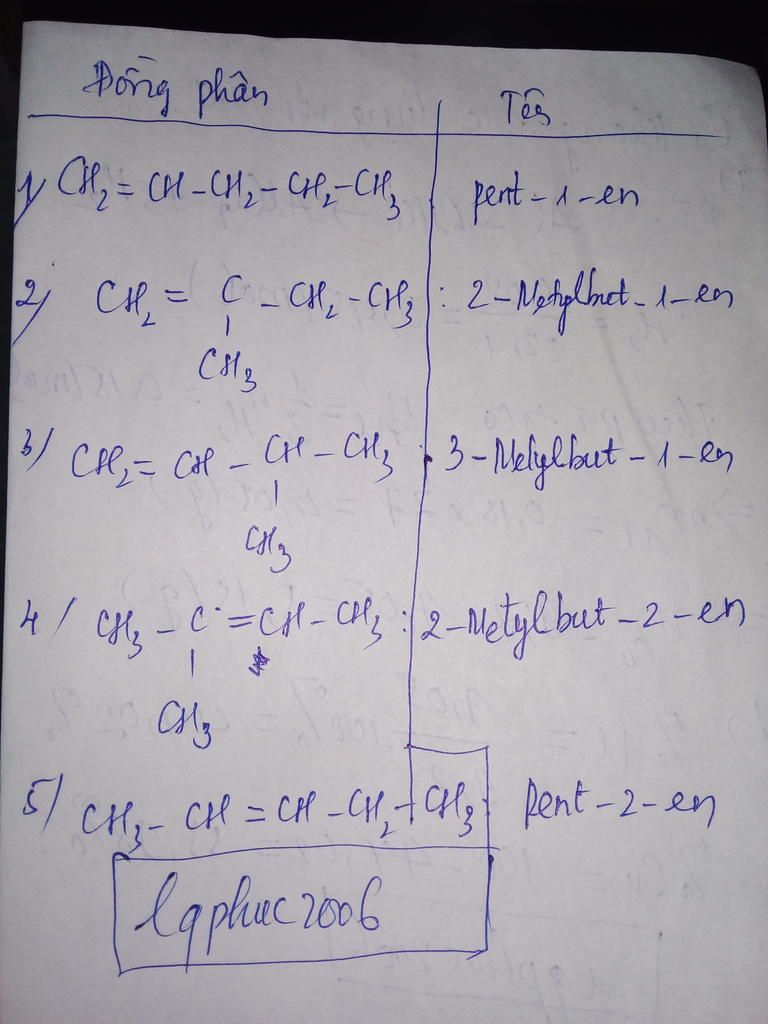 Đồng phân Tên
1/ CH₂ = CH - CH₂ - CH₂ - CH₃ : pent - 1 - en
2/ CH₂ = C - CH₂ - CH₃ : 2 - Metylbut - 1 - en
CH₃
3/ CH₂ = CH - CH - CH₃ : 3 - Metylbut - 1 - en
CH₃
4/ CH₃ - C = CH - CH₃ : 2 - Metylbut - 2 - en
CH₃
5/ CH₃ - CH = CH - CH₂ - CH₃ : Pent - 2 - en
lqphuc2006